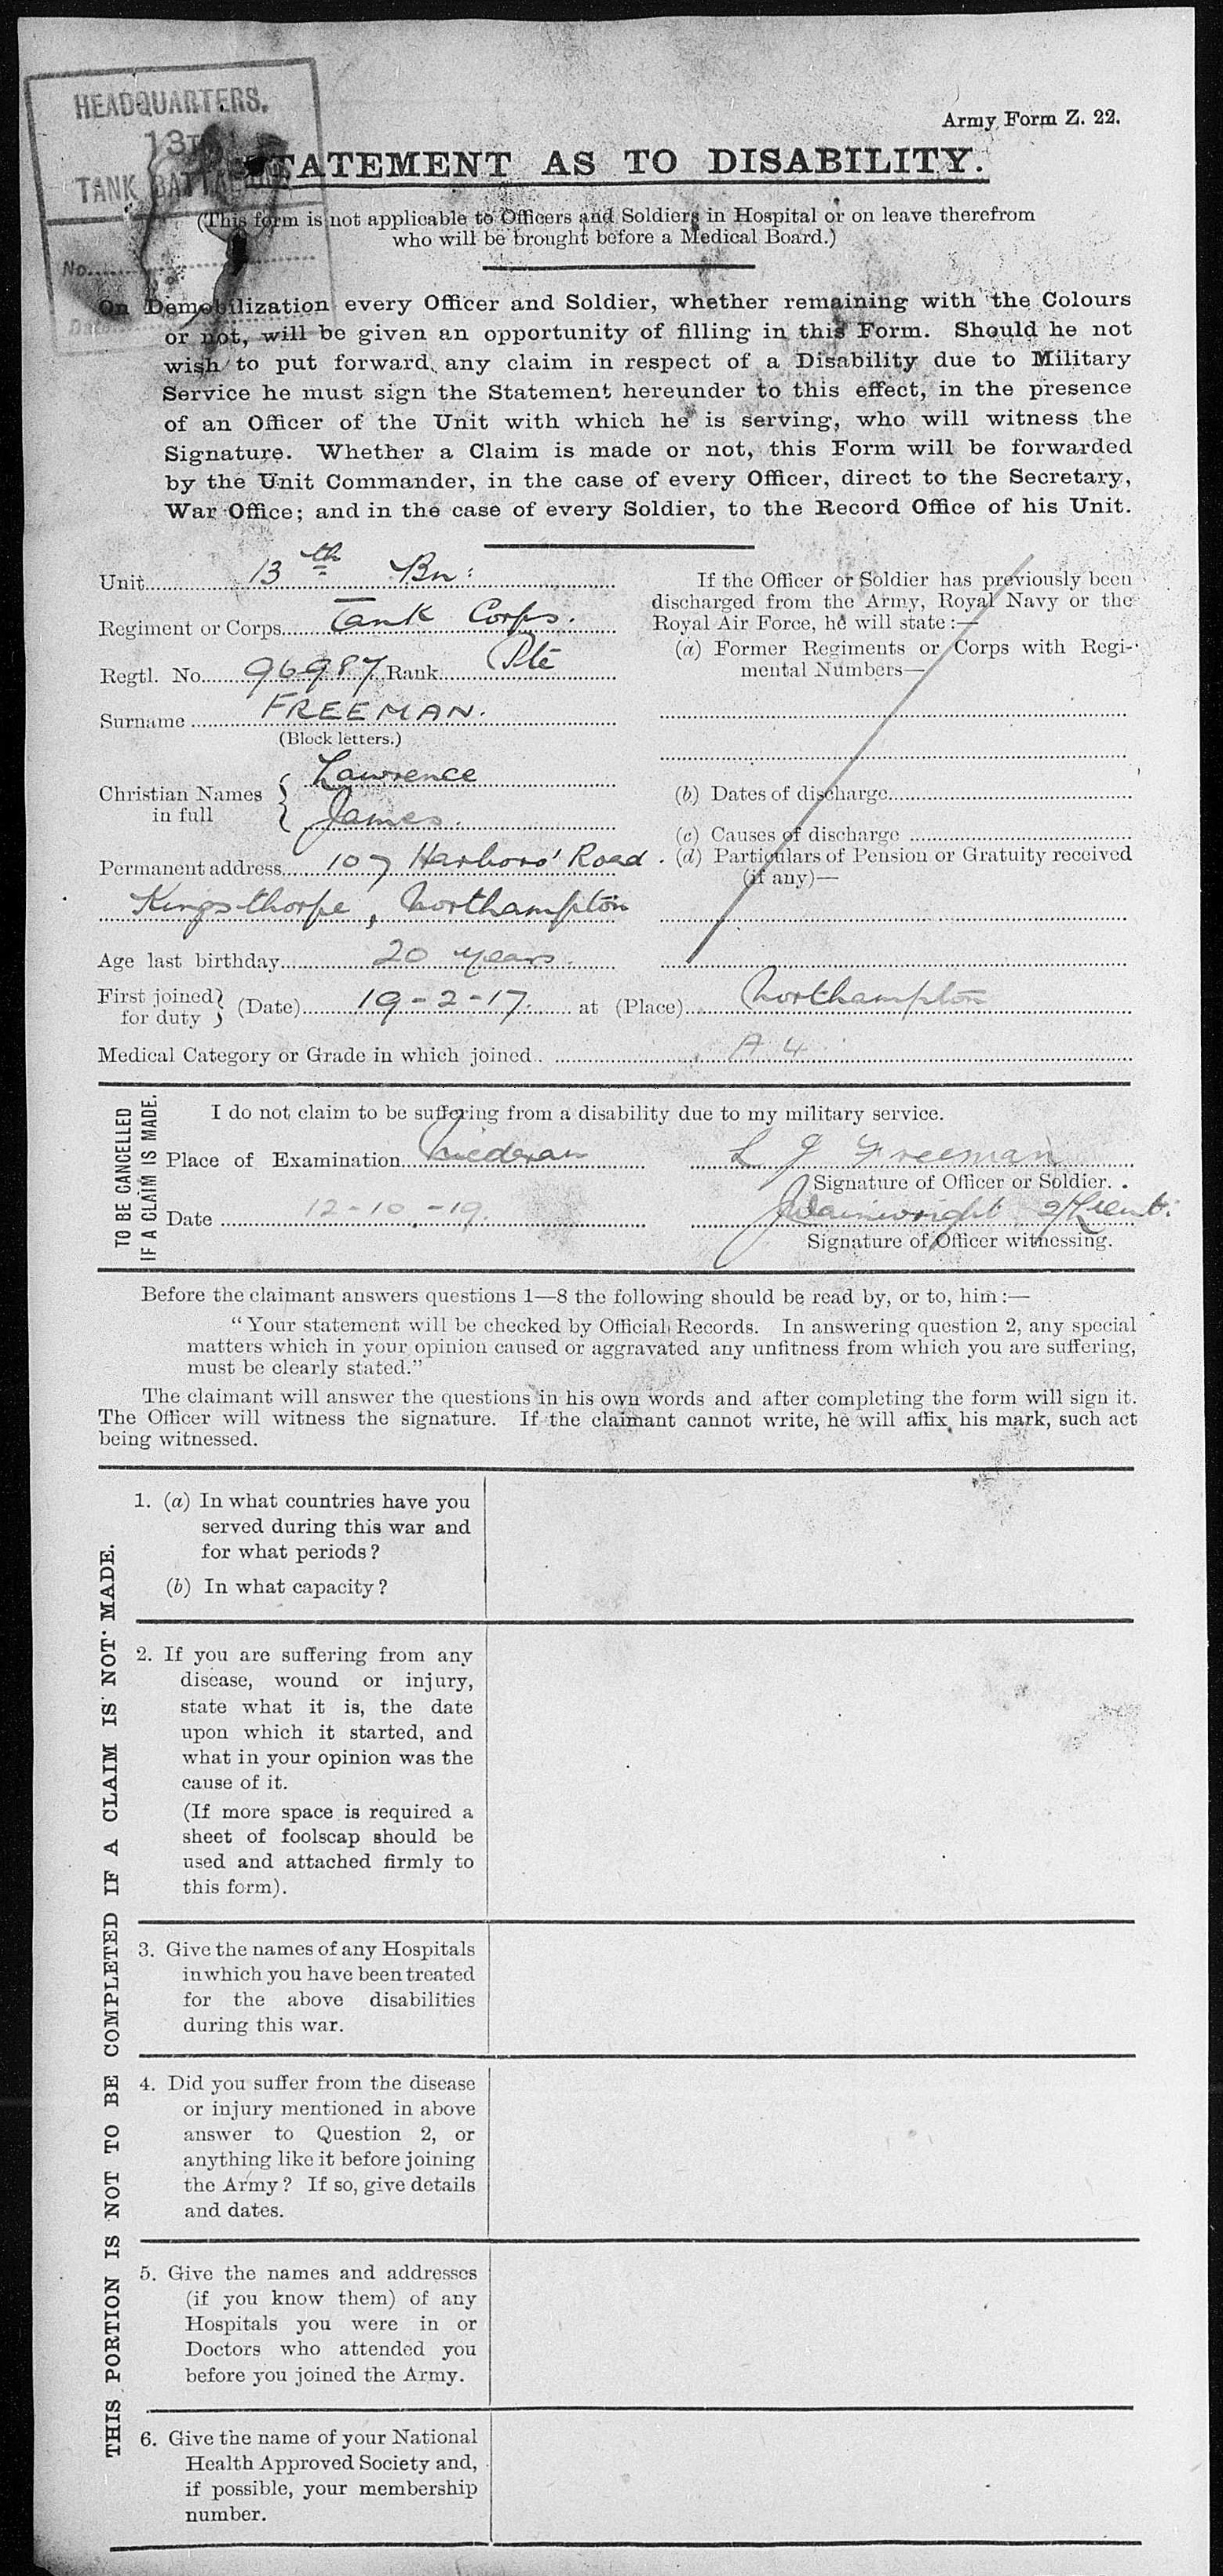 HEADQUARTERS,
13TH
TANK BATTALION
No.
Date
Army Form Z. 22.
STATEMENT AS TO DISABILITY.
(This form is not applicable to Officers and Soldiers in Hospital or on leave therefrom
who will be brought before a Medical Board.)
On Demobilization every Officer and Soldier, whether remaining with the Colours
or not, will be given an opportunity of filling in this Form. Should he not
wish to put forward any claim in respect of a Disability due to Military
Service he must sign the Statement hereunder to this effect, in the presence
of an Officer of the Unit with which he is serving, who will witness the
Signature. Whether a Claim is made or not, this Form will be forwarded
by the Unit Commander, in the case of every Officer, direct to the Secretary,
War Office; and in the case of every Soldier, to the Record Office of his Unit.
Unit 13th Bn:
Regiment or Corps Tank Corps.
Regtl. No. 96987 Rank Pte
Surname FREEMAN.
(Block letters.)
Christian Names in full Lawrence
James.
Permanent address 107 Harboro' Road.
Kingsthorpe, Northampton
Age last birthday 20 years.
If the Officer or Soldier has previously been
discharged from the Army, Royal Navy or the
Royal Air Force, he will state:—
(a) Former Regiments or Corps with Regi-
mental Numbers—
(b) Dates of discharge
(c) Causes of discharge
(d) Particulars of Pension or Gratuity received
(if any)—
First joined for duty (Date) 19-2-17. at (Place) Northampton
Medical Category or Grade in which joined. A 4
TO BE CANCELLED
IF A CLAIM IS MADE.
I do not claim to be suffering from a disability due to my military service.
Place of Examination L J Freeman
Signature of Officer or Soldier.
Date 12-10-19. J Wainwright 2/Lieut.
Signature of Officer witnessing.
Before the claimant answers questions 1—8 the following should be read by, or to, him:—
"Your statement will be checked by Official Records. In answering question 2, any special
matters which in your opinion caused or aggravated any unfitness from which you are suffering,
must be clearly stated."
The claimant will answer the questions in his own words and after completing the form will sign it.
The Officer will witness the signature. If the claimant cannot write, he will affix his mark, such act
being witnessed.
THIS PORTION IS NOT TO BE COMPLETED IF A CLAIM IS NOT MADE.
1. (a) In what countries have you
served during this war and
for what periods?
(b) In what capacity?
2. If you are suffering from any
disease, wound or injury,
state what it is, the date
upon which it started, and
what in your opinion was the
cause of it.
(If more space is required a
sheet of foolscap should be
used and attached firmly to
this form).
3. Give the names of any Hospitals
in which you have been treated
for the above disabilities
during this war.
4. Did you suffer from the disease
or injury mentioned in above
answer to Question 2, or
anything like it before joining
the Army? If so, give details
and dates.
5. Give the names and addresses
(if you know them) of any
Hospitals you were in or
Doctors who attended you
before you joined the Army.
6. Give the name of your National
Health Approved Society and,
if possible, your membership
number.